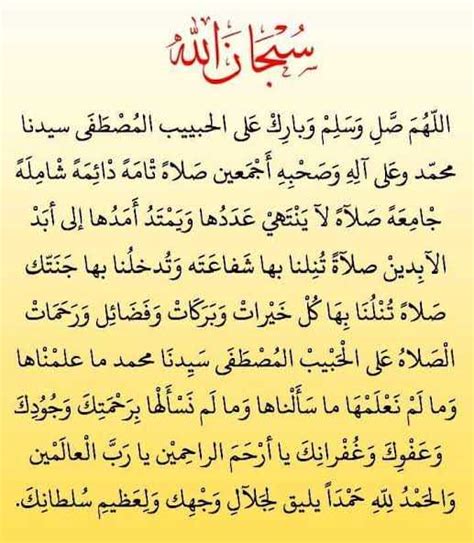 سُبْحَانَ اللّٰه
اللّهُمَ صَّلِ وَسَلِمْ وَبارِكْ عَلى الحبيب المُصْطَفَى سيدنا
محمّد وعَلى آلِهِ وَصَحْبِهِ أَجْمَعين صَلاةً تْامَةً دْائِمَةً شْامِلَةً
جْامِعَةً صَلآةً لآ يَنْتَهِيْ عَدَدُها وَيَمْتَدُ أَمَدُها إلى أبَدْ
الآبِدينْ صلآةً تُنِلنا بها شَفاعَتَه وَتُدخلُنا بها جَنَتّك
صَلاةً تُنْلُنَا بِهَا كُلْ خَيْراتْ وَبَرَكَاتْ وَفَضَائِل وَرَحَمَاتْ
الْصَلاهُ عَلى الْحَبْيبْ المُصْطَفَى سَيِدنَا محمد ما علمْناها
وَما لَمْ نَعْلَمْهَا ما سَأَلْناها وَما لَم نَسْأَلْها بِرَحْمَتِكَ وَجُودِكَ
وَعَفْوِكَ وَغُفْرانِكَ يا أَرْحَمَ الراحِمِيْن يا رَبَّ الْعالَمْين
وَالحَمْدُ لِلّهِ حَمْدَاً يليق لِجَلآلِ وَجْهِك وَلِعَظيمِ سُلطانِكَ.